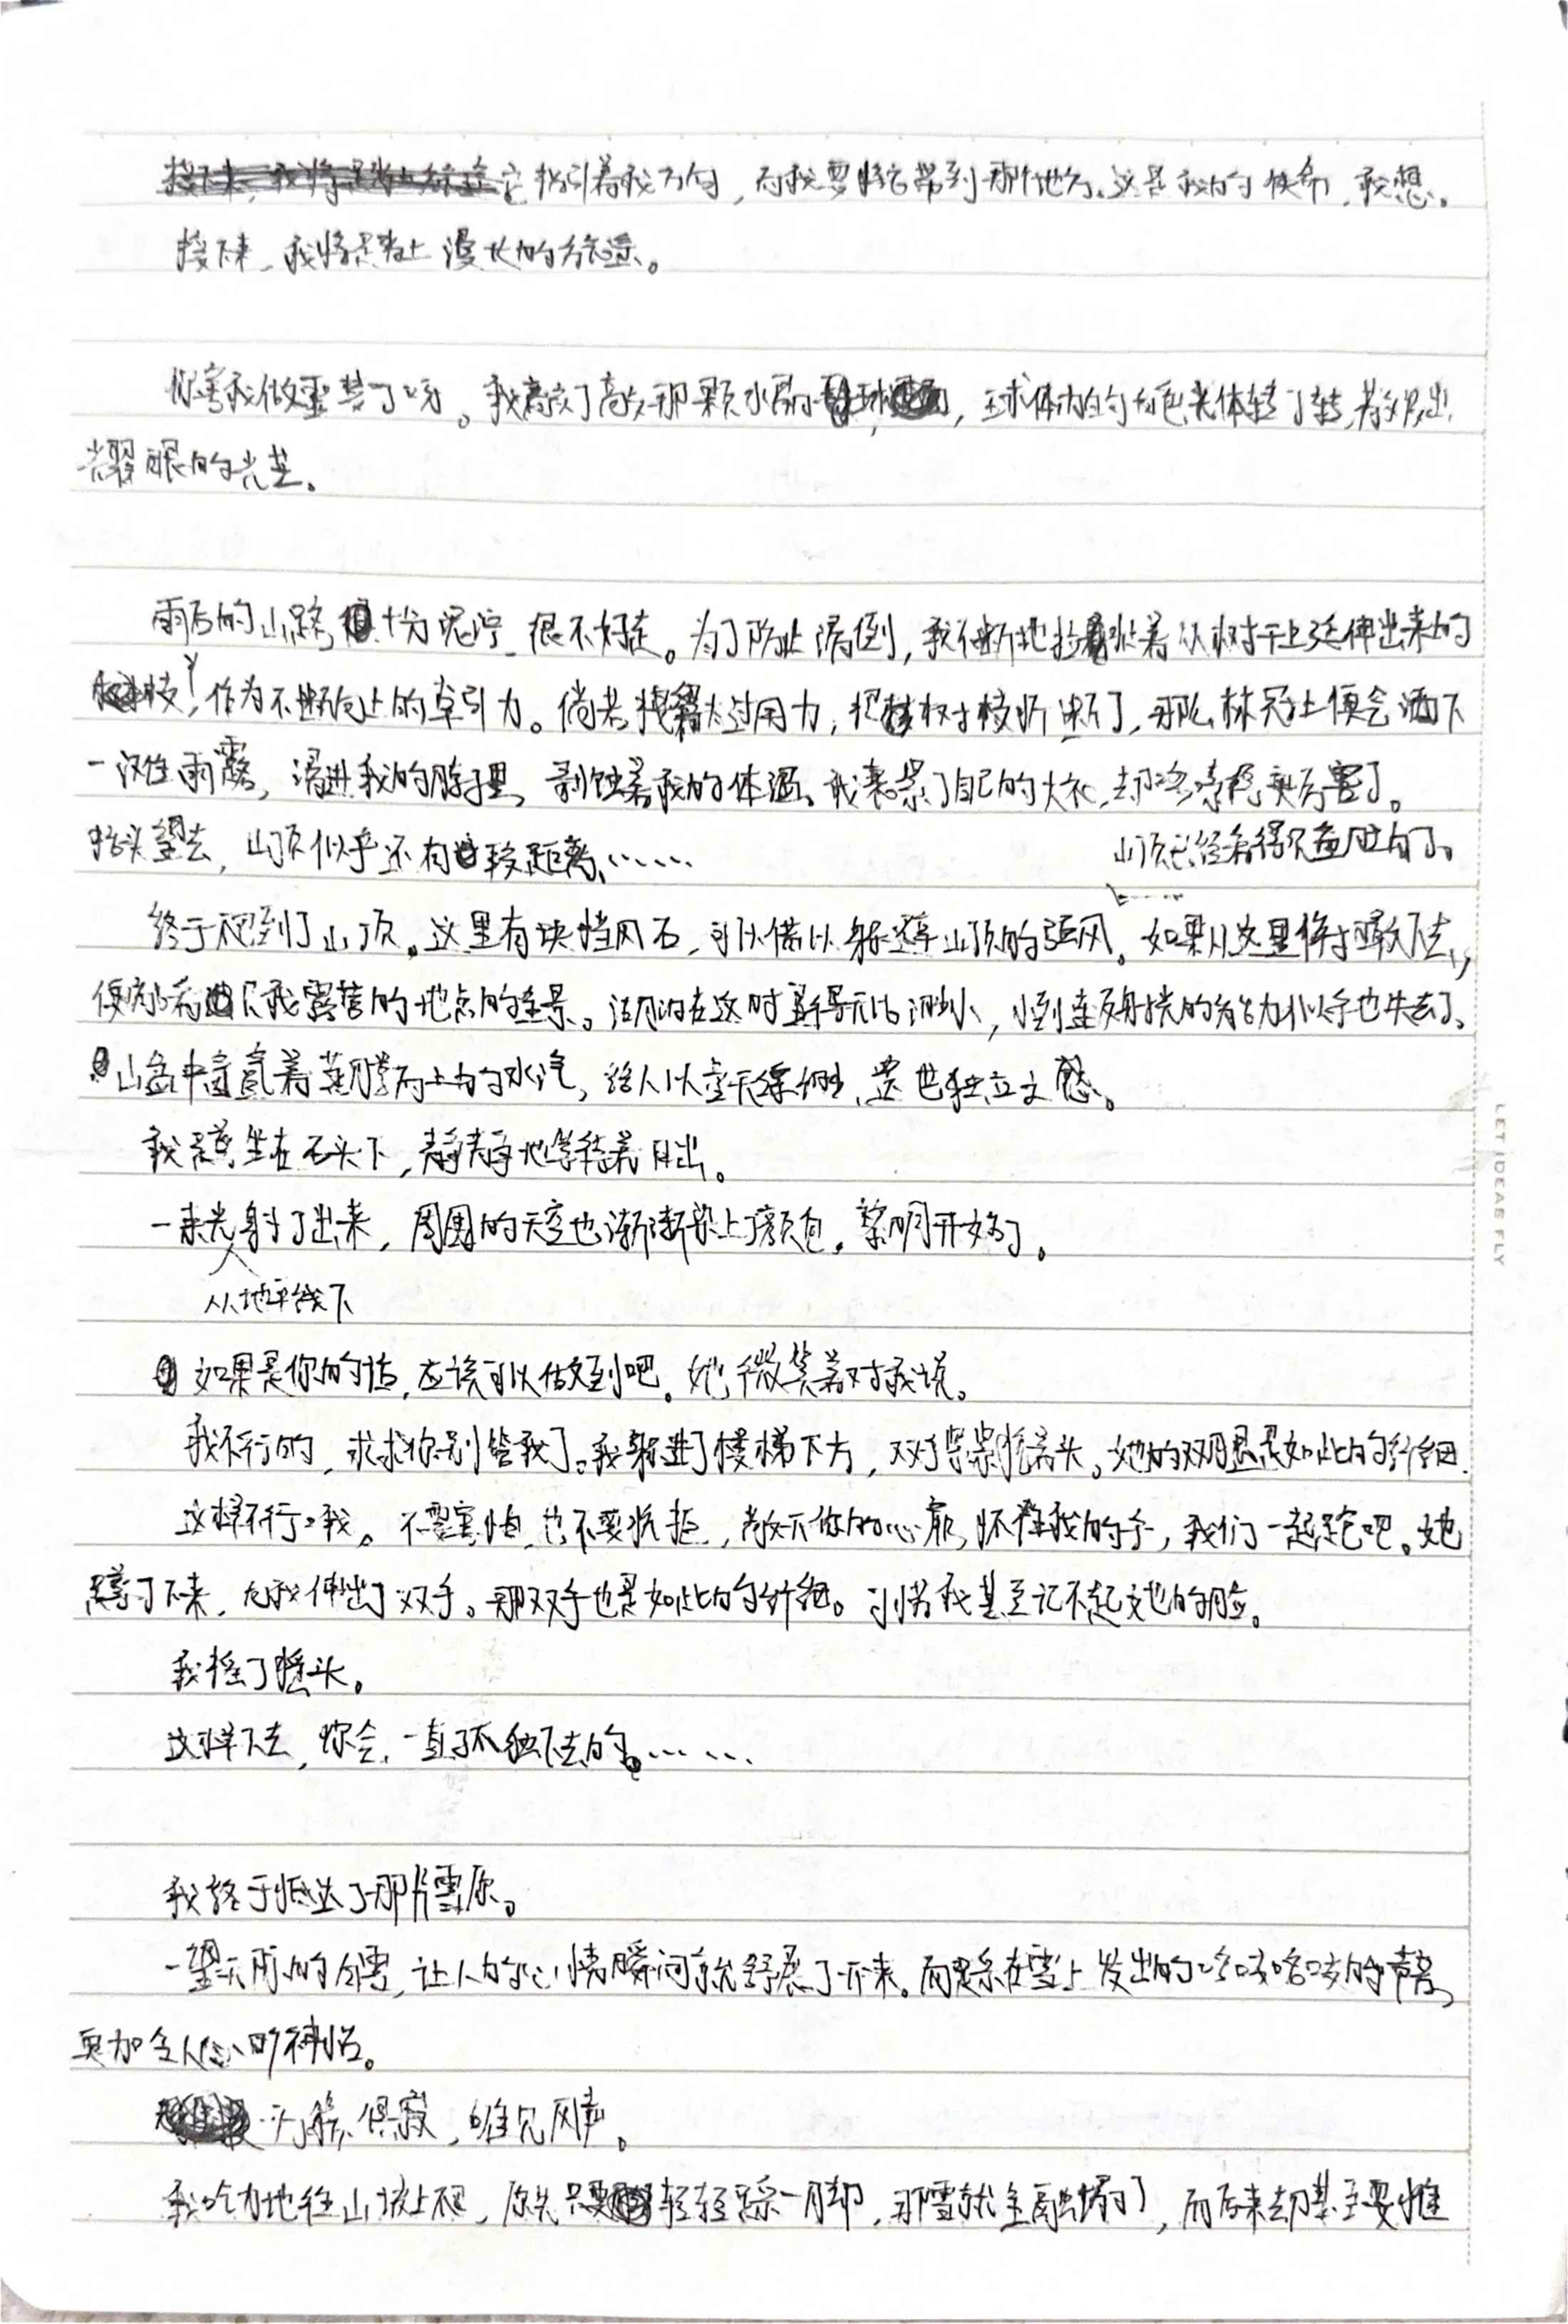 它指引着我方向，而我要将它带到那个地方。这是我的使命，我想。
接下来，我将踏上漫长的旅途。
你害我做噩梦了呀。我敲了敲那颗水晶球，球体内的白色光体转了转，散发出
光耀眼的光芒。
雨后的山路十分泥泞，很不好走。为了防止滑倒，我不断地拉着从树干上延伸出来的
枝丫，作为不断向上的牵引力。倘若太过用力，把树枝折断了，那么林冠上便会洒下
一次性雨露，滑进我的脖子里，剥蚀着我的体温。我裹紧了自己的大衣，却
抬头望去，山顶似乎还有段距离……
山顶已经看得见
终于爬到了山顶。这里有块挡风石，可以借以躲避山顶的强风。如果从这里俯瞰下去，
便能看见我露营的地点的全景。湖泊在这时显得无比渺小，小到连反射光的能力似乎也失去了。
山岚中蒸腾而上的水汽，给人以虚无缥缈、遗世独立之感。
我蹲坐在石头下，静静地等待着日出。
一束光射了出来，周围的天空也渐渐染上了颜色。黎明开始了。
从地平线下
如果是你的话，应该可以做到吧。她微笑着对我说。
我不行的，求求你别管我了。我躲进了楼梯下方，双手紧紧抱着头。她的双腿是如此的纤细。
这样不行。不要害怕，也不要抗拒，敞开你的心扉，握住我的手，我们一起走吧。她
蹲了下来，向我伸出了双手。那双手也是如此的纤细。可惜我甚至记不起她的脸。
我摇了摇头。
这样下去，你会一直孤独下去的……
我终于抵达了那片雪原。
一望无际的白雪，让人的心情瞬间就舒展了下来。而踩在雪上发出的咯吱咯吱的声音，
更加令人心旷神怡。
万籁俱寂，唯见风声。
我吃力地往山坡上爬，原先只要轻轻踩一脚，那雪就全融塌了，而后来却甚至要